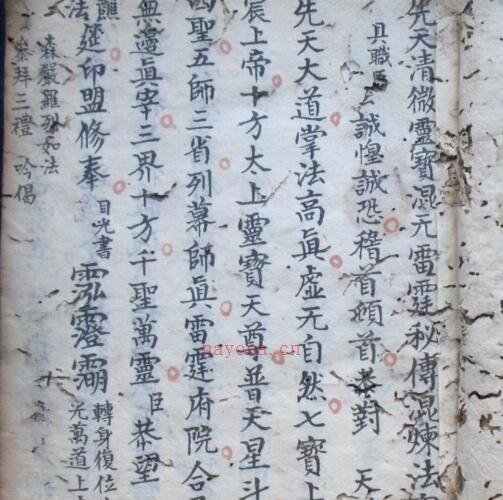 先天清微靈寶混元雷霆秘傳混煉法
具職臣厶誠惶誠恐稽首頓首恭對 天
先天大道掌法高真虛无自然七寶上
辰上帝十方太上靈寶天尊普天星斗
四聖五師三省列幕師真雷霆府院合
無邊真宰三界十方千聖萬靈 臣 恭望
醮筵印盟修奉 目光書
轉身復位
光萬道上
法
森嚴羅列如法
恭拜三禮 吟偈
nayona.cn